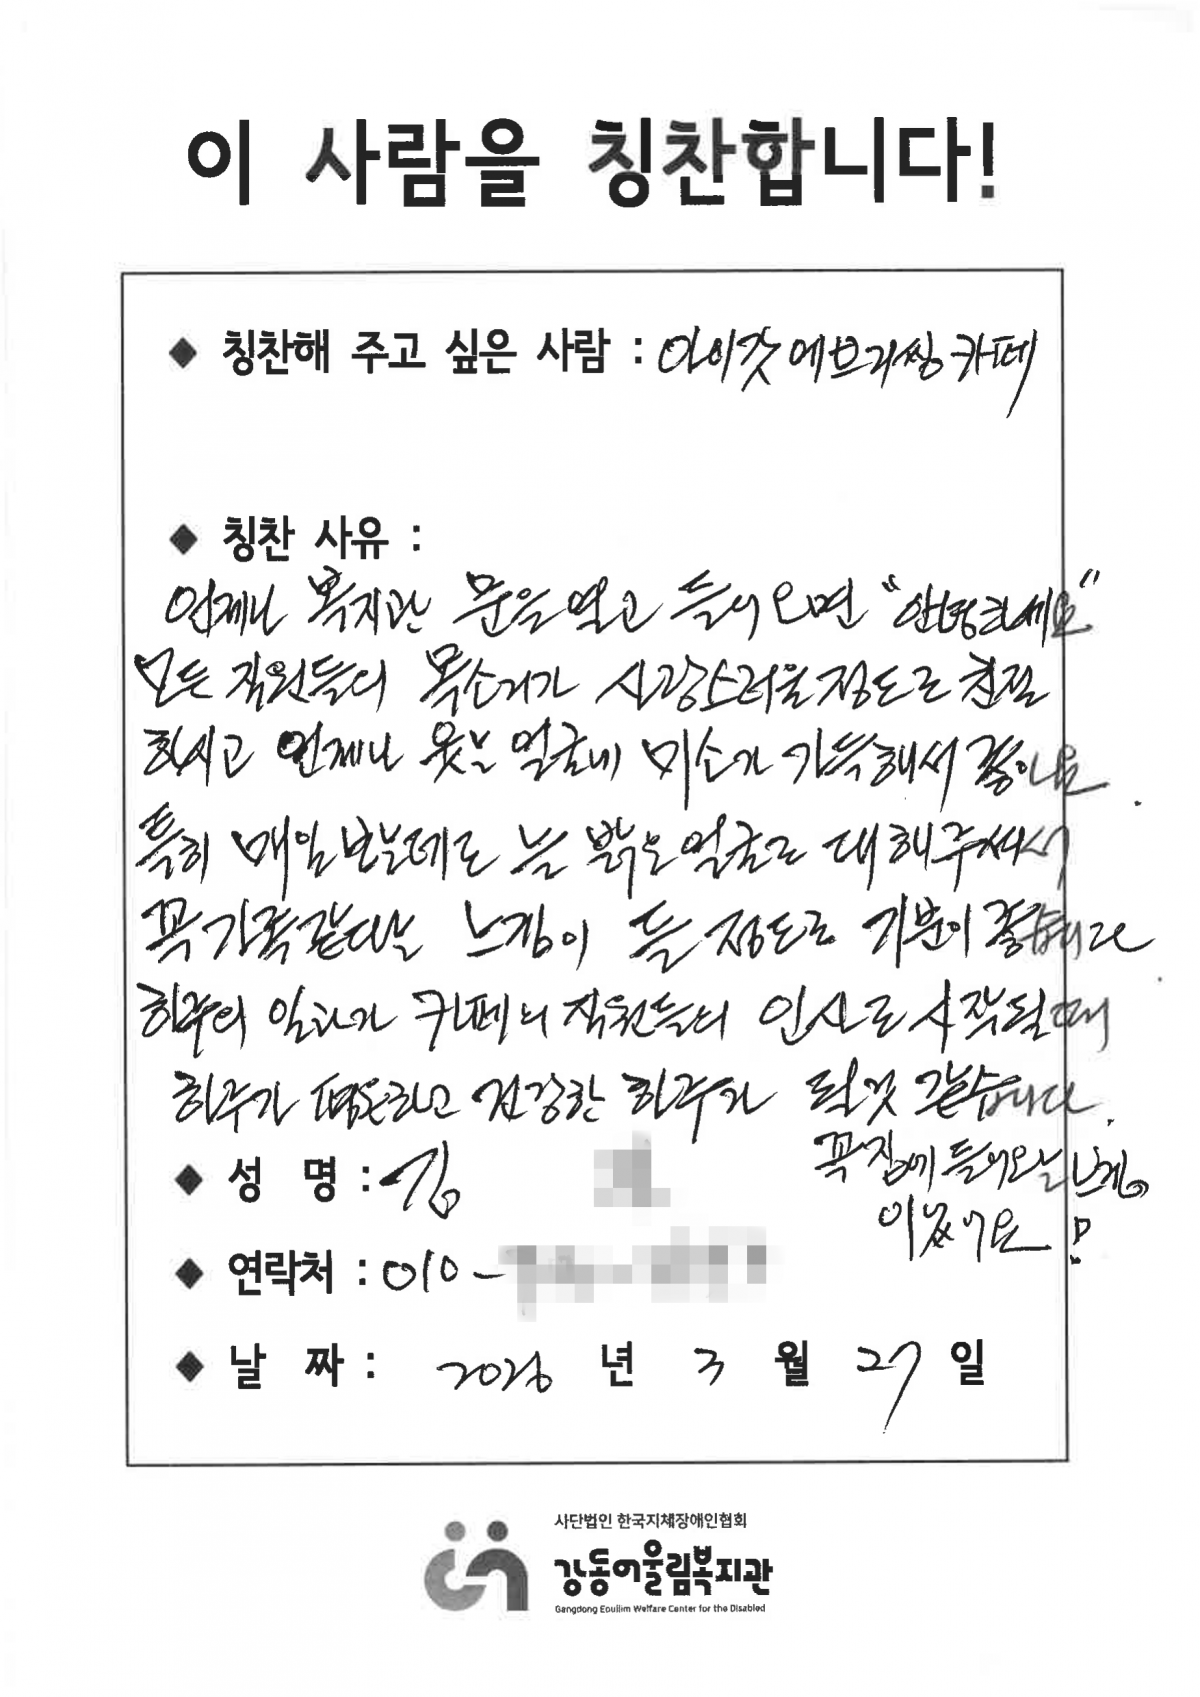 이 사람을 칭찬합니다!
◆ 칭찬해 주고 싶은 사람 : 아이갓에브리씽카페
◆ 칭찬 사유 :
언제나 복지관 문을 열고 들어오면 “안녕하세요”
모든 직원들의 목소리가 사랑스러울정도로 친절
하시고 언제나 웃는 얼굴에 미소가 가득해서 좋아요.
특히 매일 보는데도 늘 밝은얼굴로 대해주셔서
꼭 가족같다는 느낌이 들 정도로 기분이 좋습니다.
하루의 일과가 카페의 직원들의 인사로 시작될때
하루가 평온하고 건강한 하루가 될것 같습니다.
꼭 집에 들어오는 느낌
이였어요!
◆ 성 명 : 김
◆ 연락처 : 010-
◆ 날 짜 : 2026 년 3 월 27 일
사단법인 한국지체장애인협회
강동어울림복지관
Gangdong Eoullim Welfare Center for the Disabled